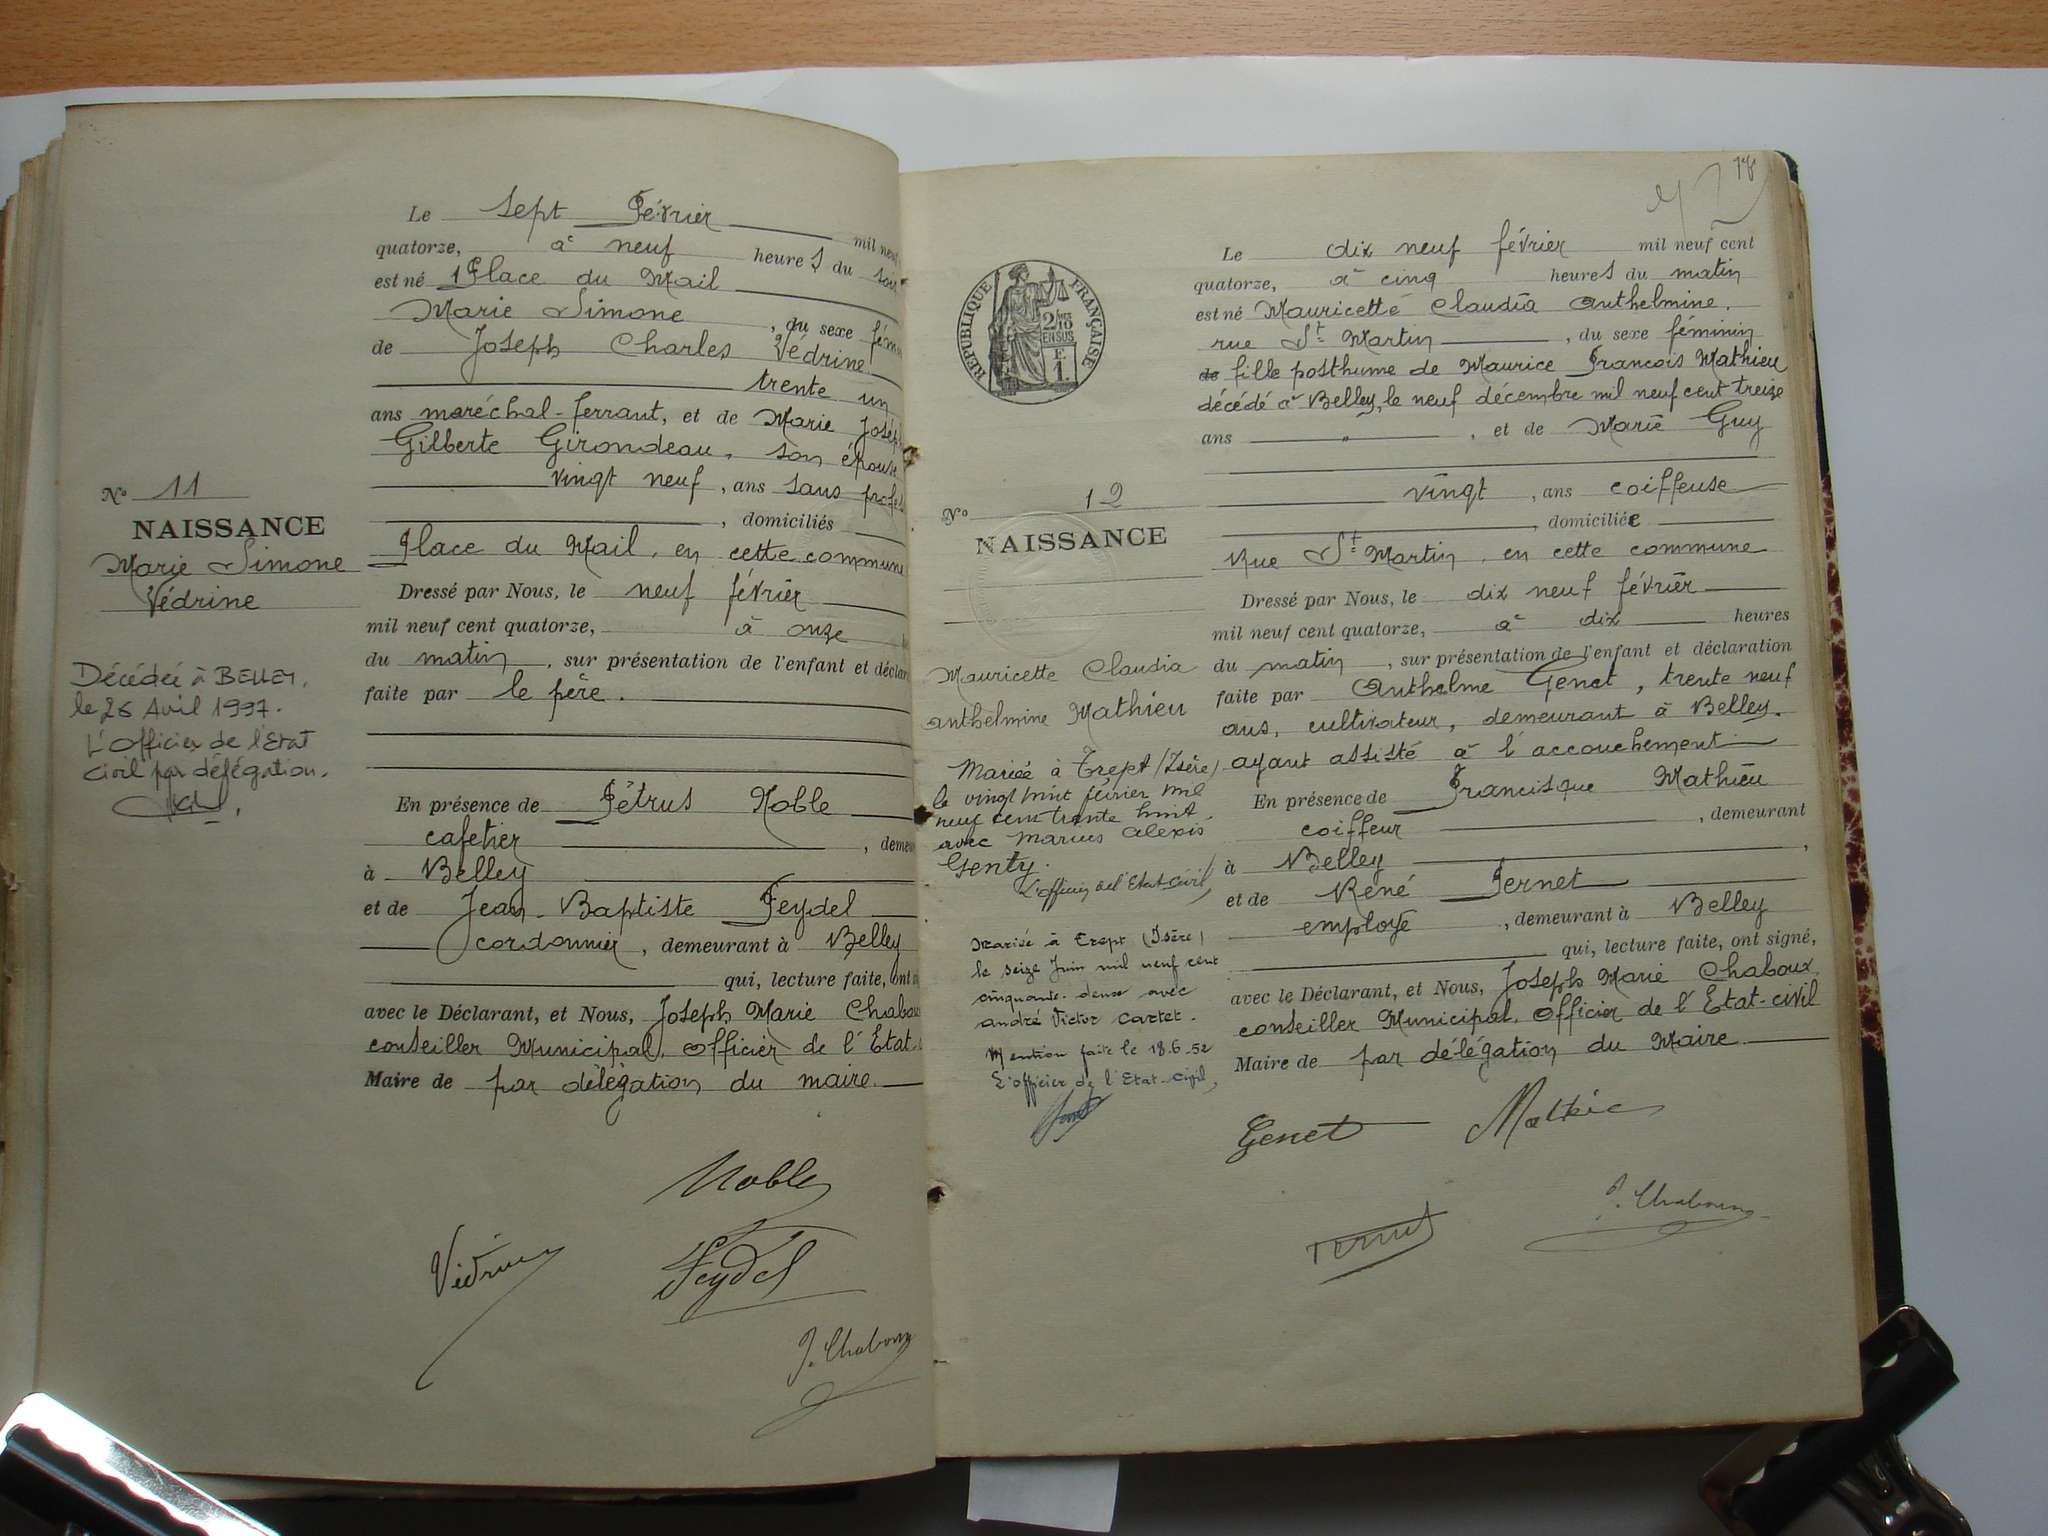 Le sept Février mil neuf
quatorze, à neuf heures du soir
est né 1 Place du Mail
Marie Simone, du sexe fém
de Joseph Charles Védrine
trente un
ans maréchal-ferrant, et de Marie Joseph
Gilberte Girondeau, son épouse
vingt neuf, ans sans profes
domiciliés
Place du Mail, en cette commune
Dressé par Nous, le neuf février
mil neuf cent quatorze, à onze
du matin, sur présentation de l'enfant et déclar
faite par le père.
En présence de Pétrus Noble
cafetier, demeu
à Belley
et de Jean-Baptiste Feydel
cordonnier, demeurant à Belley
qui, lecture faite, ont
avec le Déclarant, et Nous, Joseph Marie Chabou
conseiller Municipal, officier de l'Etat
Maire de par délégation du maire.
Noble
Védrine
Feydel
J. Chaboux
No 11
NAISSANCE
Marie Simone
Védrine
Décédée à BELLEY,
le 26 Avril 1997.
L'Officier de l'Etat
civil par délégation.
18
RÉPUBLIQUE FRANÇAISE
2/10
EN SUS
F.
1.
Le dix neuf février mil neuf cent
quatorze, à cinq heures du matin
est né Mauricette Claudia Anthelmine.
rue St Martin, du sexe féminin
de fille posthume de Maurice François Mathieu
décédé à Belley, le neuf décembre mil neuf cent treize
ans " , et de Marie Guy
vingt, ans coiffeuse
domiciliée
Rue St Martin, en cette commune
Dressé par Nous, le dix neuf février
mil neuf cent quatorze, à dix heures
du matin, sur présentation de l'enfant et déclaration
faite par Anthelme Genet, trente neuf
ans, cultivateur, demeurant à Belley.
ayant assisté à l'accouchement
En présence de Francisque Mathieu
coiffeur, demeurant
à Belley,
et de René Pernet
employé, demeurant à Belley
qui, lecture faite, ont signé,
avec le Déclarant, et Nous, Joseph Marie Chaboux,
conseiller Municipal, officier de l'Etat-civil
Maire de par délégation du Maire
Genet Mathieu
J. Chaboux
No 12
NAISSANCE
Mauricette Claudia
anthelmine Mathieu
Mariée à Trept (Isère)
le vingt huit février mil
neuf cent trente huit
avec Marius Alexis
Genty.
L'officier de l'Etat-civil,
Mariée à Trept (Isère)
le seize Juin mil neuf cent
cinquante-deux avec
André Victor Cartet.
Mention faite le 18.6.52
L'officier de l'Etat-civil,